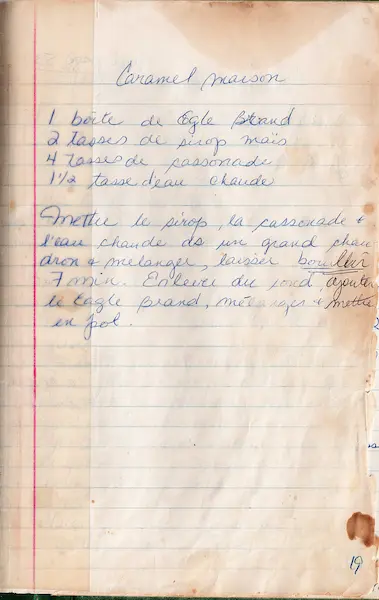 Caramel maison
1 boîte de Eagle Brand
2 tasses de sirop maïs
4 tasses de cassonade
1½ tasse d'eau chaude
Mettre le sirop, la cassonade +
l'eau chaude ds un grand chau
dron + mélanger, laisser bouillir
7 min. Enlever du rond, ajouter
le Eagle Brand, mélanger + mettre
en pot.
19